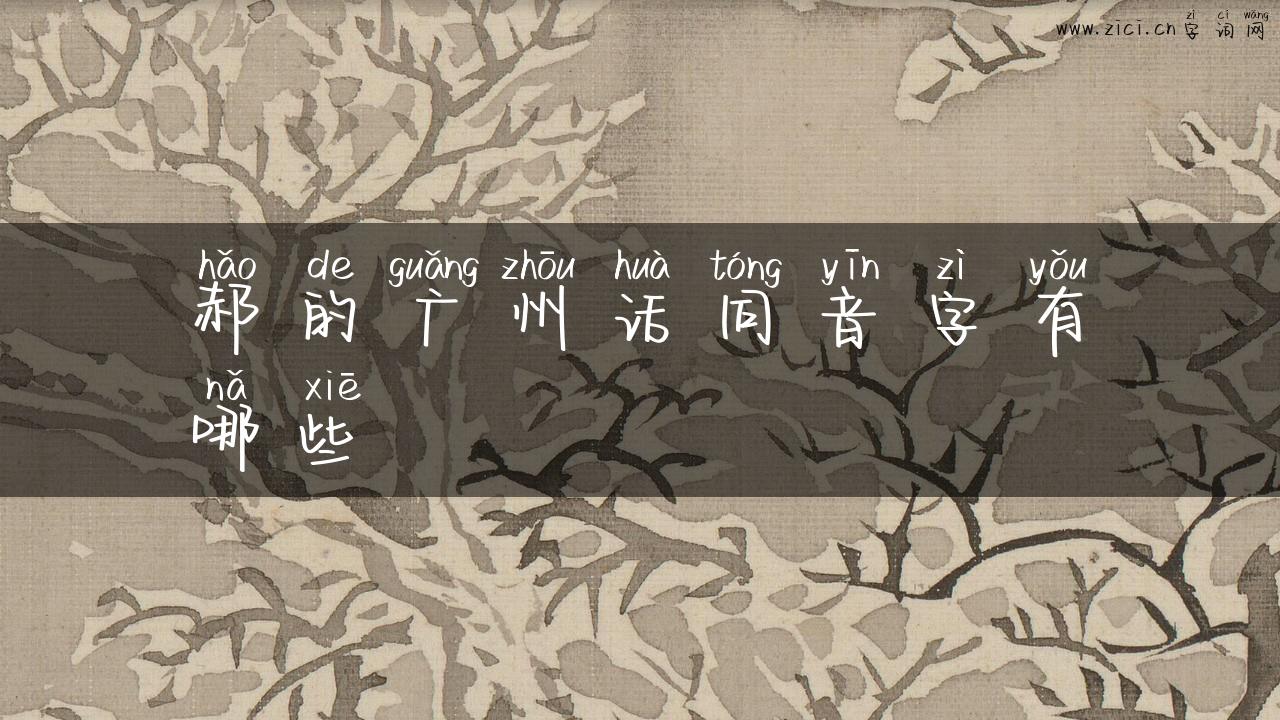 zì cí wǎng
www.zici.cn 字 词 网
hǎo de guǎng zhōu huà tóng yīn zì yǒu
郝 的 广 州 话 同 音 字 有
nǎ xiē
哪 些